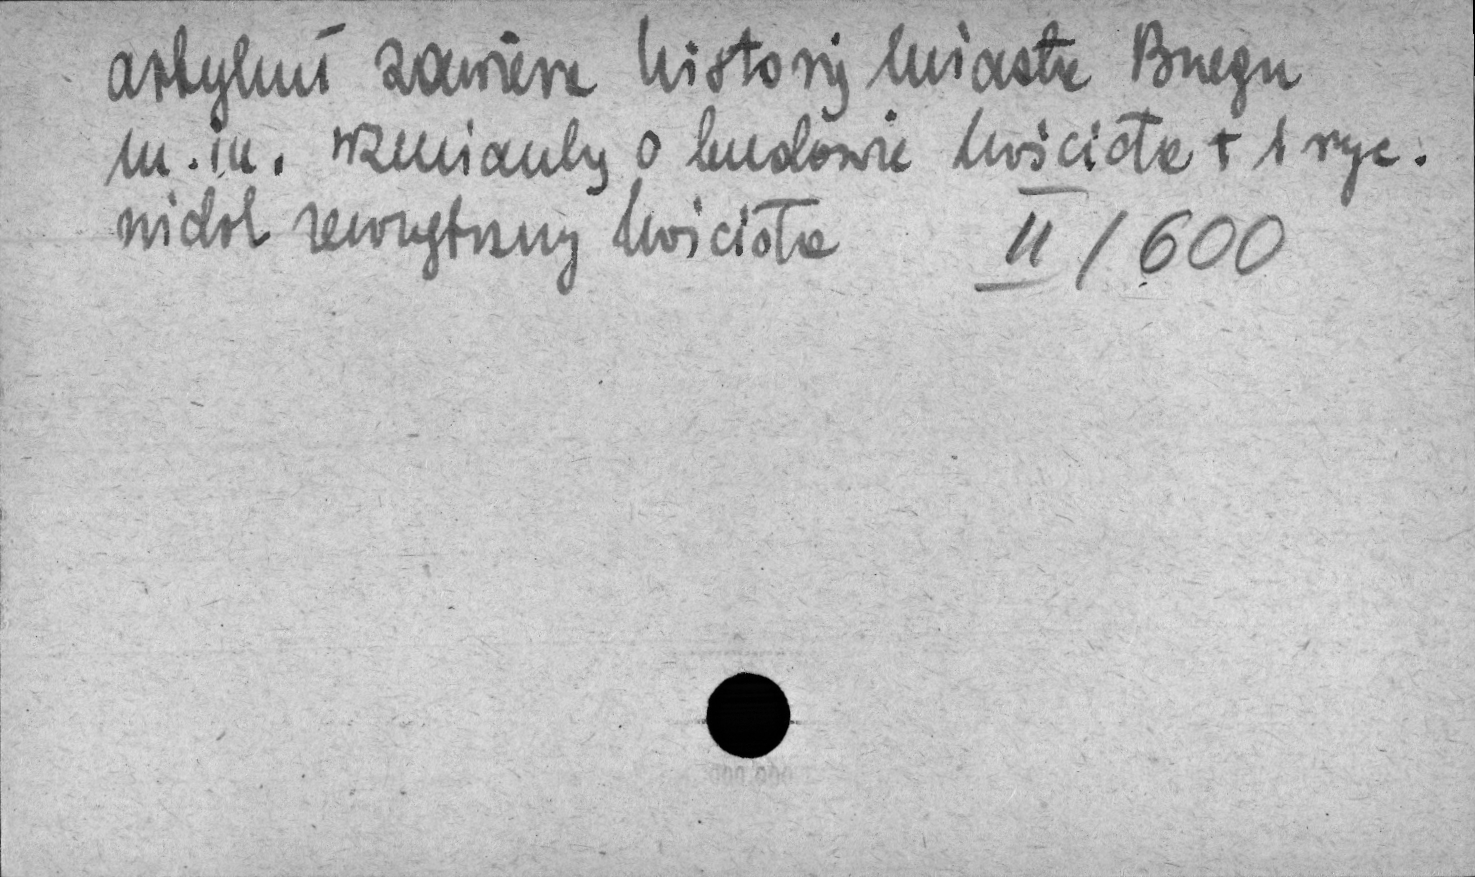 artykuł zawiera historię miasta Brzegu
m.in. wzmianky o budowie kościoła + 1 ryc.
widok zewnętrzny kościoła II / 600